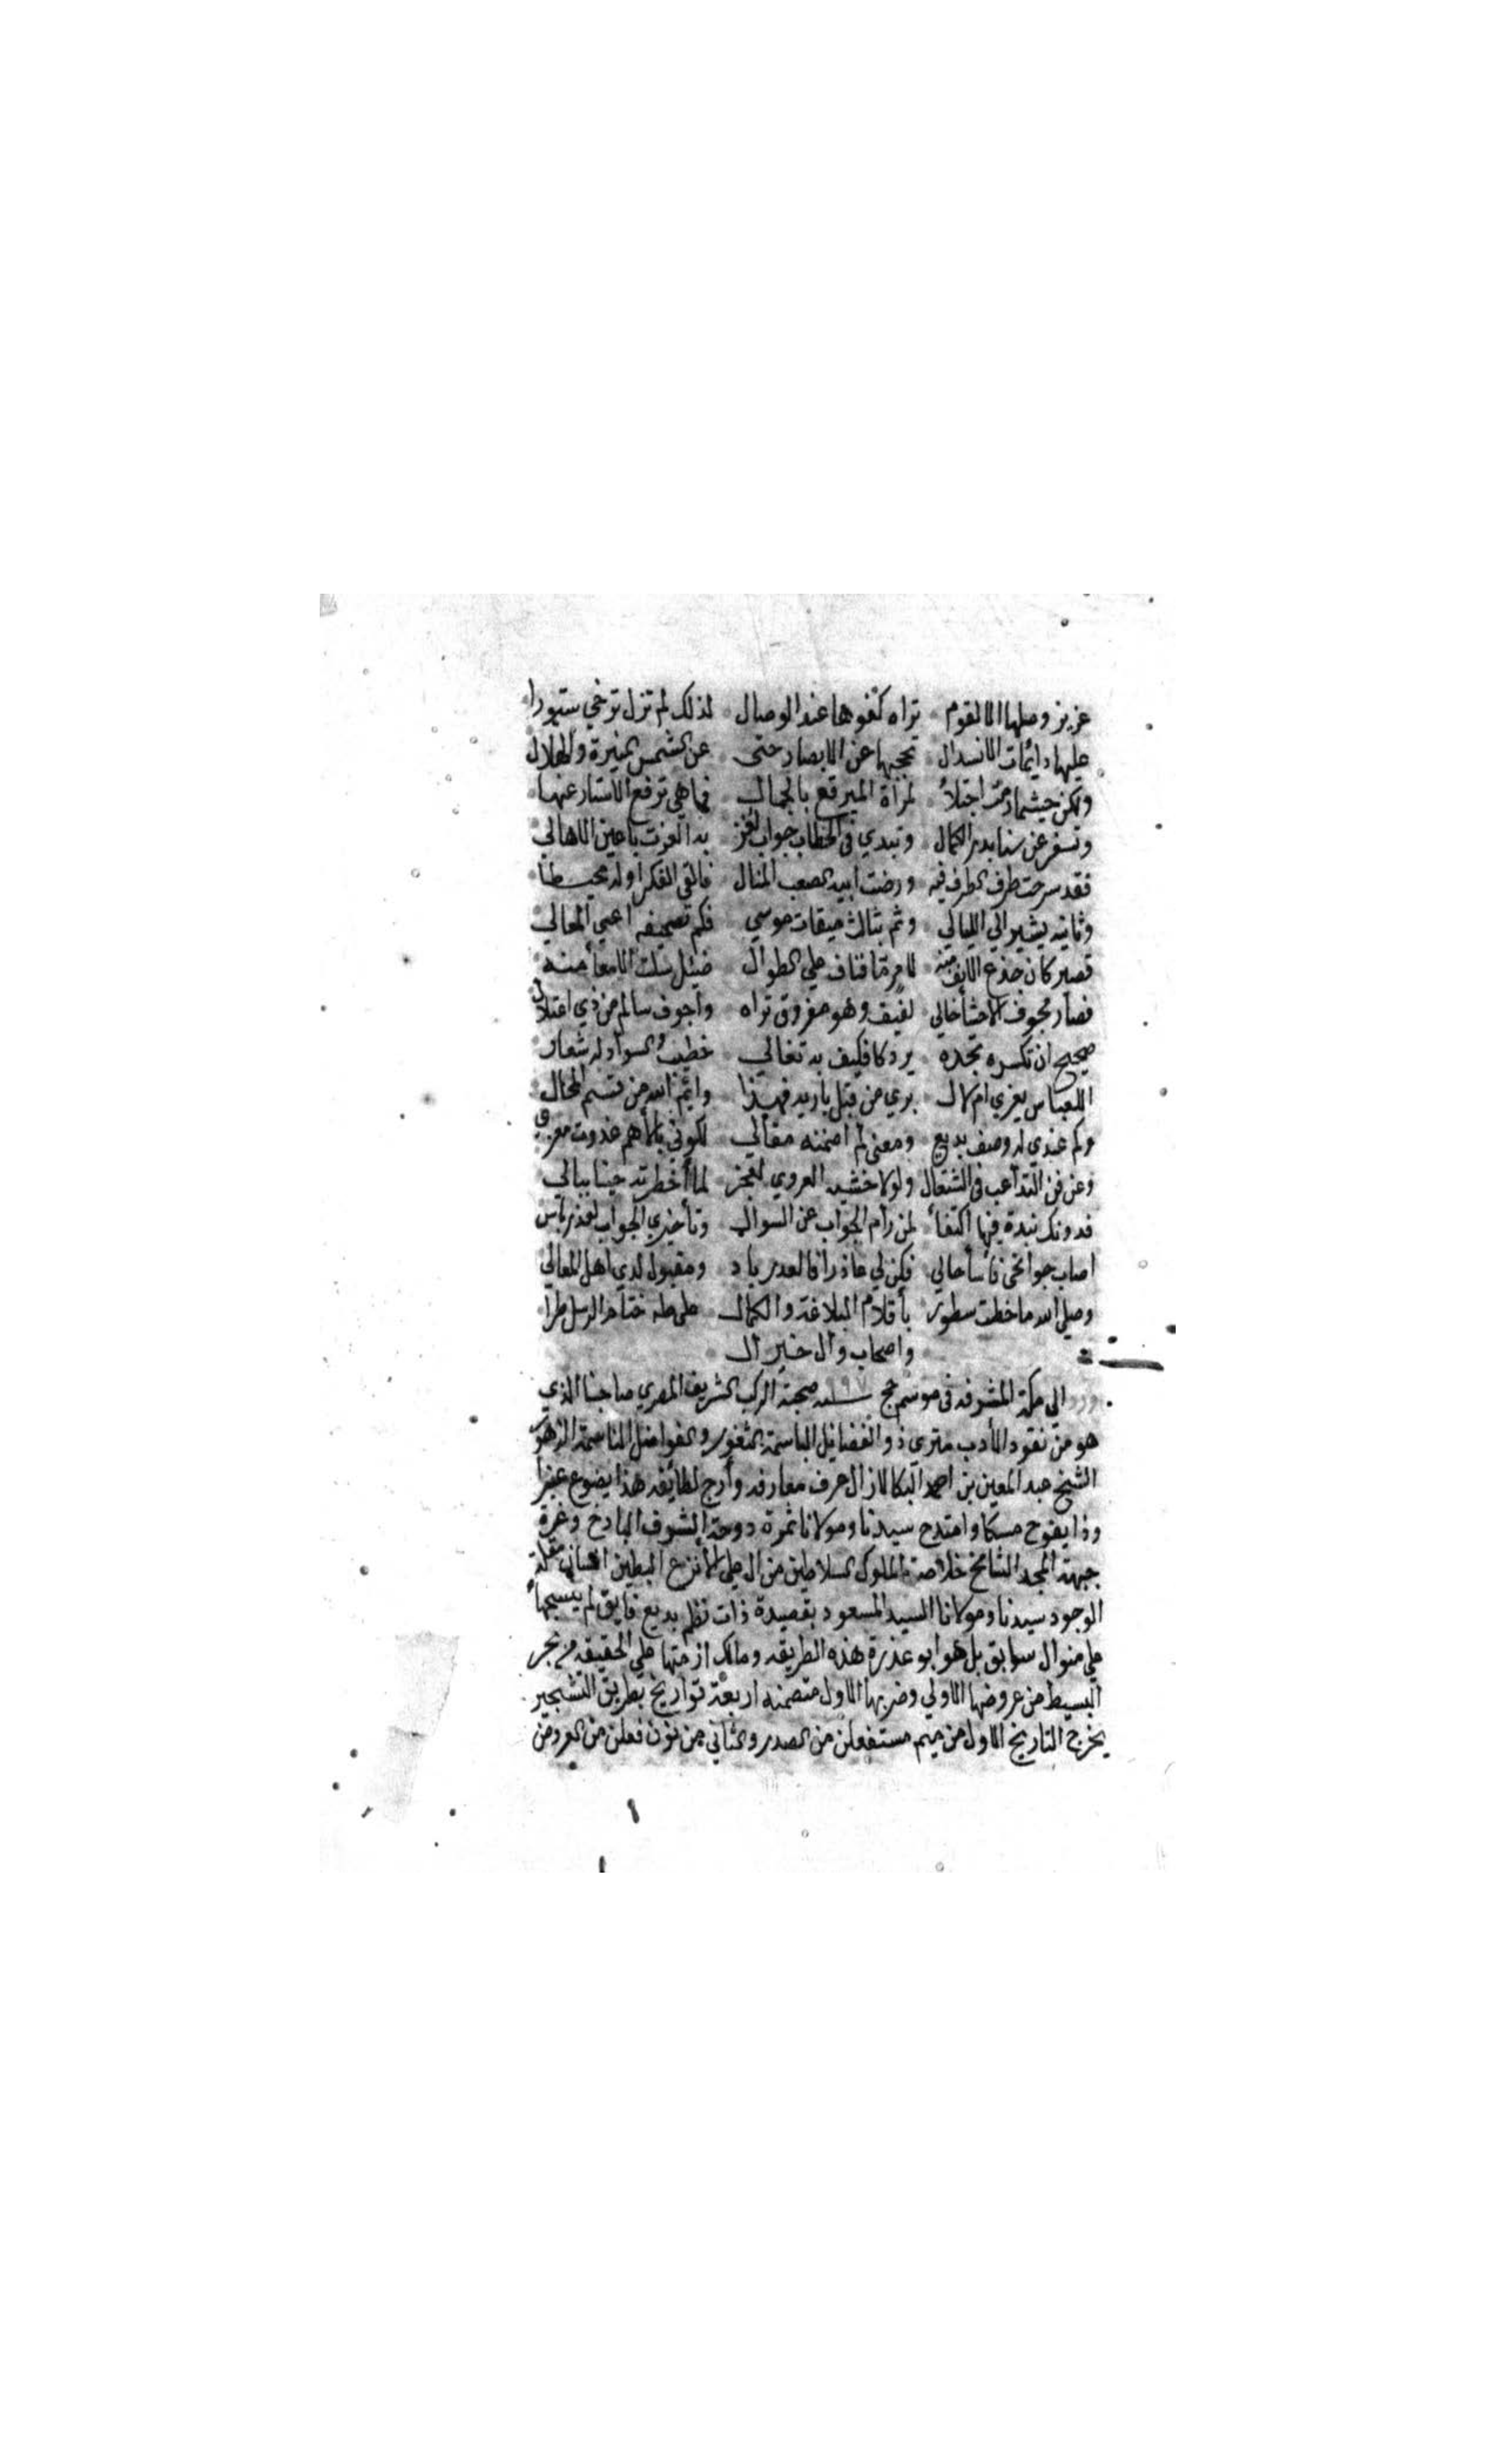 عزيز وصلها الا لقوم تراه كفوها عند الوصال لذلك لم تزل ترخي ستورا
عليها دائمات الانسدال تحجبها عن الابصار حتى عن الشمس المنيرة والهلال
ولكن حيثما رمت اجتلاء لمرآة المبرقع بالجمال فها هي ترفع الاستار عنها
وتسفر عن سنا بدر الكمال وتبدي في الخطاب جواب لغز به الغزت يا عين الاهالي
فقد سرحت طرف الطرف فيه ورضت ابيه الصعب المنال فالقى الفكر اوله محيطا
وثانيه يشير الى الليالي وثم بثالث ميقات موسى فكم تصحيفه اعيى المعالي
قصير كان جذع الانف منه لامر ما فناف على الطوال ضئيل سلت الامعا منه
فصار مجوف الاحشا خالي لفيف وهو مفروق تراه واجوف سالم من ذي اعتلال
صحيح ان تكسره تجده يرد كا فكيف به تغالي خطيب والسواد له شعار
اللعباس يعزي ام لال بري من قبل باريه فهذا وايم الله من قسم المحال
وكم عندي له وصف بديع ومعنى لم اضمنه مقالي لكوني بالاهم غدوت مغرى
وعن فن التداعب في اشتغال ولولا خشية العزوي لعجز لما اخطرته حينا ببالي
فدونك نبذة فيها اكتفاء لمن رام الجواب عن السوال وتأخيري الجواب لعذر باس
اصاب جوانحى فأسأ حالي فكن لي عاذرا فالعذر باد ومقبول لدي اهل المعالي
وصلى الله ما خطت سطور بأقلام البلاغة والكمال على طه ختام الرسل طرا
واصحاب وآل خير آل
ورد الي مكة المشرفه في موسم حج سنه ١١٩٧ صحبة الركب الشريف المصري صاحبنا الذي
هو من نقود الأدب مثرى ذو الفضائل الباسمة الثغور والفواضل الناسمة الزهور
الشيخ عبد المعين بن احمد البكا لا زال عرف معارفه وأرج لطائفه هذا يضوع عنبرا
وذا يفوح مسكا وامتدح سيدنا ومولانا ثمرة دوحة الشرف الباذخ وغرة
جبهة المجد الشامخ خلاصة الملوك السلاطين من ال علي الأنزع البطين انسان مقلة
الوجود سيدنا ومولانا السيد المسعود بقصيدة ذات نظم بديع فايق لم ينسجها
على منوال سابق بل هو ابو عذرة هذه الطريقه ومالك ازمتها علي الحقيقه من بحر
البسيط من عروضها الاولي وضربها الاول متضمنه اربعة تواريخ بطريق التشجير
يخرج التاريخ الاول من ميم مستفعلن من الصدر والثاني من نون فعلن من العروض